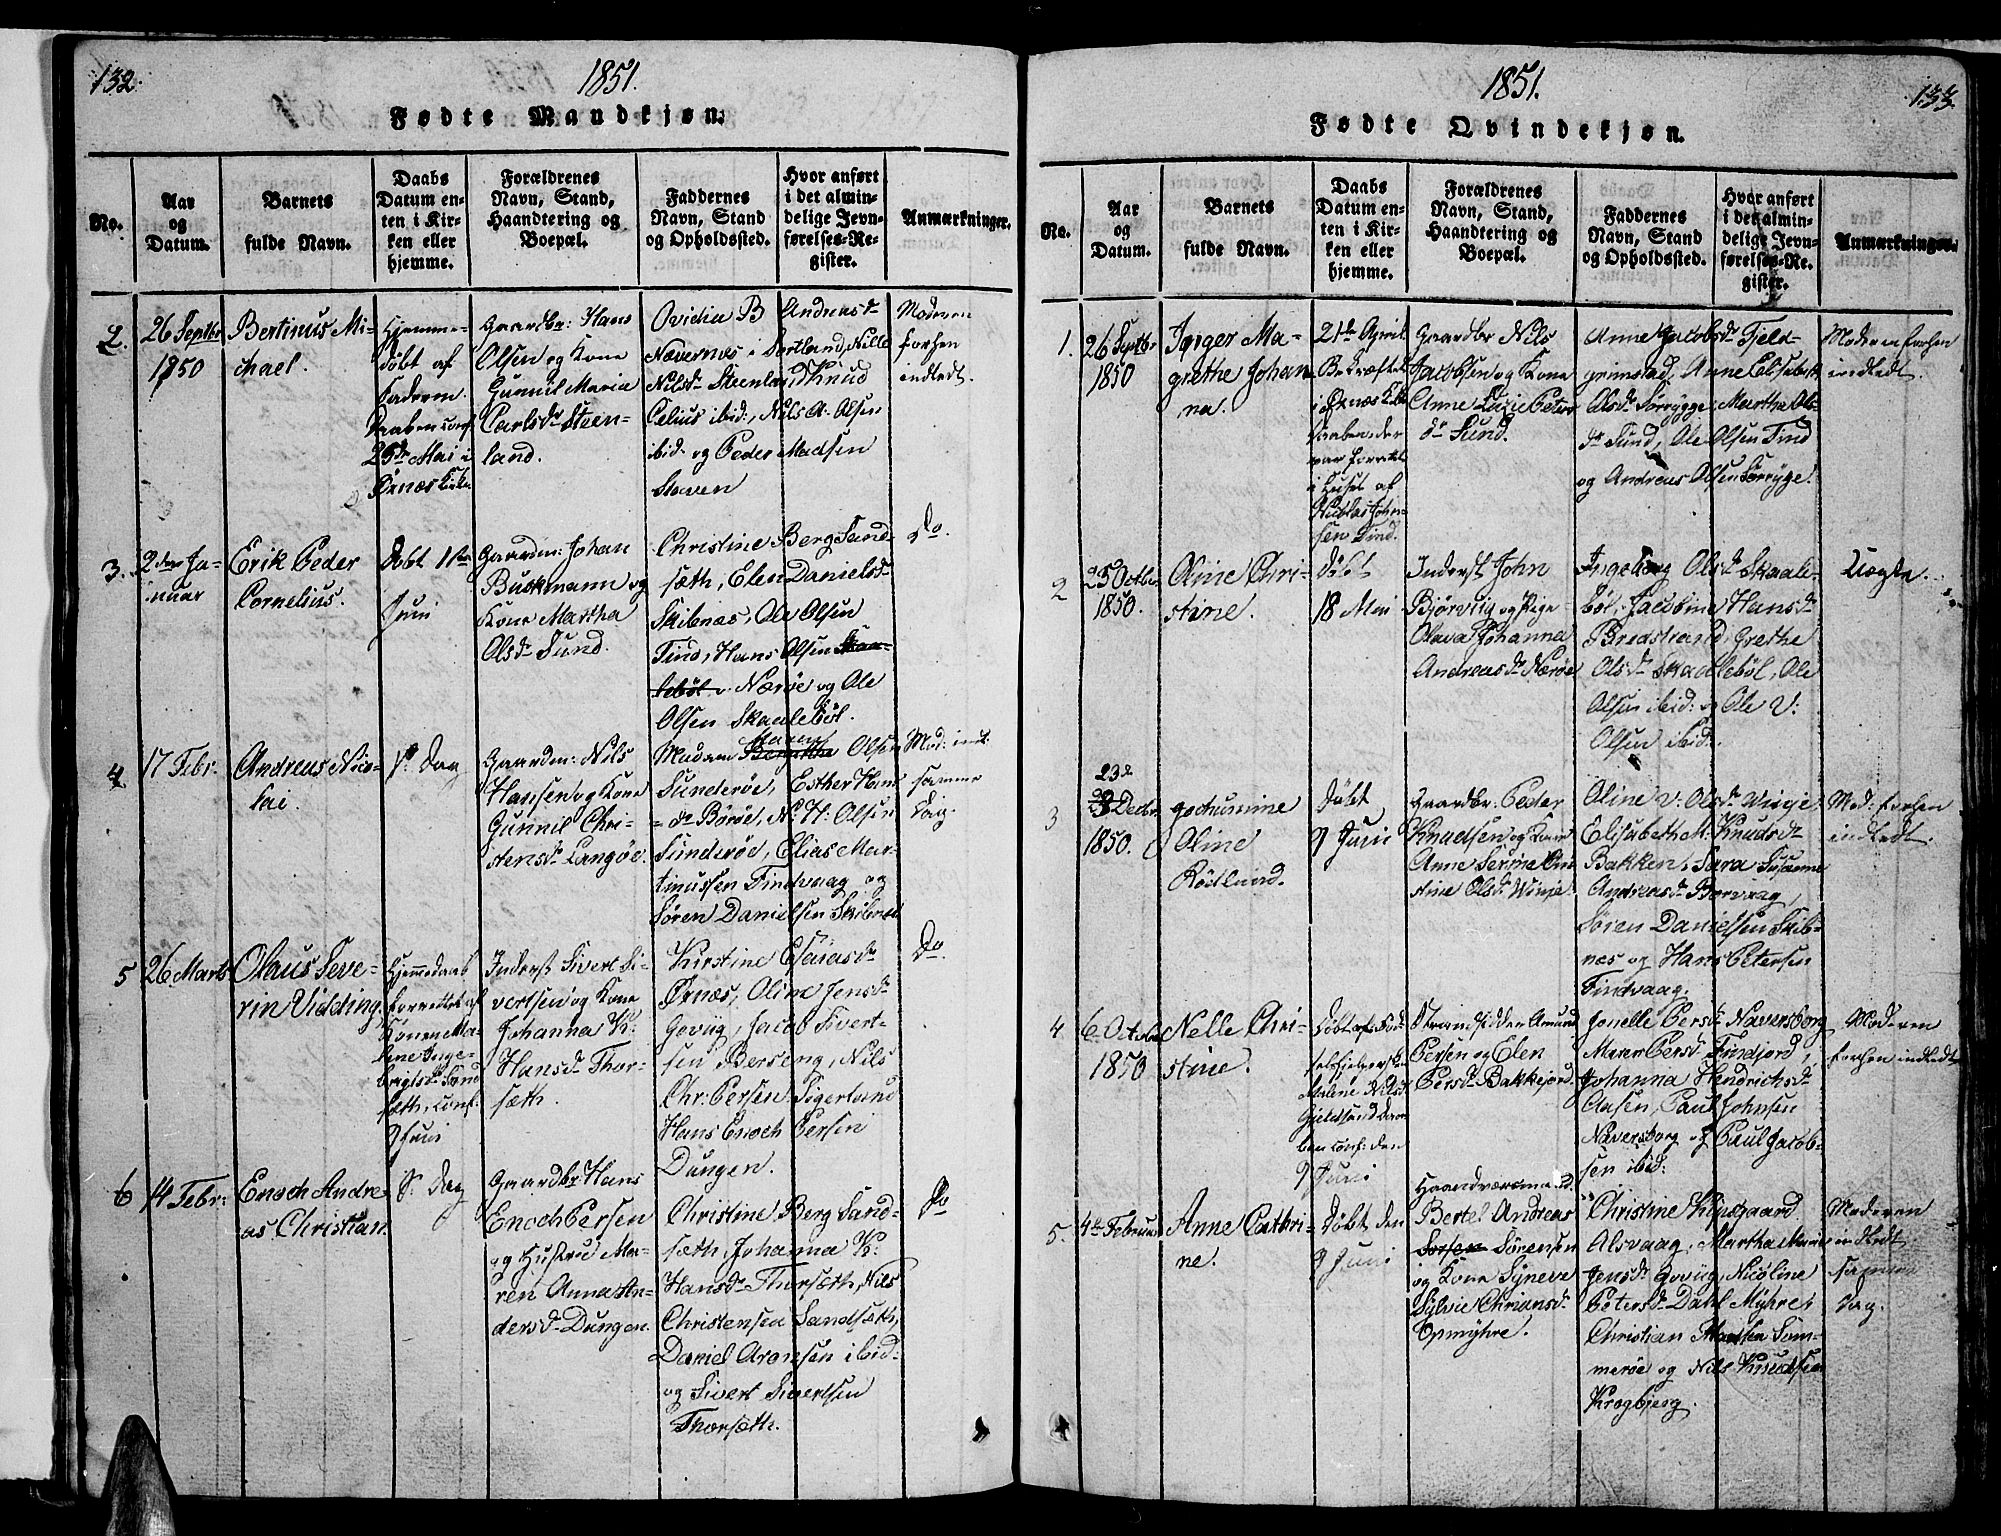 132.
1851.
Fødte Mandkjøn.
No.
Aar
og
Datum.
Barnets
fulde Navn.
Daabs
Datum en-
ten i Kir-
ken eller
hjemme.
Forældrenes
Navn, Stand,
Haandtering og
Boepæl.
Faddernes
Navn, Stand
og Opholdssted.
Hvor anført
i det almin-
delige Jevn-
førelses-Re-
gister.
Anmærkninger.
2.
26 Septbr
1850
Bertinus Mi-
chael.
Hjemme-
døbt af
Faderen.
Daaben conf.
25de Mai i
Ørnæs Kirke
Gaardbr: Hans
Olsen og Kone
Gunnil Maria
Carlsdr Steen-
land.
Ovidia B Andreasdr
Nævernæs i Sortland, Nille
Nilsdr Steenland, Knud
Celius ibid:, Nils A. Olsen
ibid: og Peder Madsen
Staven
Moderen
forhen
indledt.
3.
2den Ja-
nuar
Erik Peder
Cornelius.
Døbt 1ste
Juni
Gaardm: Johan
Buckmann og
Kone Martha
Olsdr Sund.
Christine Berg Sand-
sæth, Elen Danielsdr
Skibnæs, Ole Olsen
Tind, Hans Olsen Skaa-
lebøl Nærøe og Ole
Olsen Skaalebøl.
Do.
4
17 Febr.
Andreas Nico-
lai.
S. Dag
Gaardm: Nils
Hansen og Kone
Gunnil Chri-
stensdr Langøe.
Maren
Madam Olsen
Sunderøe, Esther Hans
dr Børøe, N. H. Olsen
Sunderøe, Elias Mar-
tinussen Tindvaag og
Søren Danielsen Skibnæs
Mod: indl:
samme
Dag.
5
26 Marts
Olaus Seve-
rin Vidding.
Hjemmedaab
forrettet af
Konen Ma-
line Inge-
brigtsdr Sand
sæth, conf.
9 Juni
Inderst Sivert Si-
vertsen og Kone
Johanna K.
Hansdr Thor-
sæth.
Kirstine Esaiasdr
Ørnæs, Olina Jensdr
Govüg, Jacob Sivert-
sen Berseng, Nils
Chr: Persen Sigerland
Hans Enoch Persen
Dungen.
Do.
6
14 Febr:
Enoch Andre
as Christian.
S. Dag
Gaardbr Hans
Enoch Persen
og Hustrue Ma-
ren Anna An-
dersdr Dungen.
Christine Berg Sand-
sæth, Johanna K:
Hansdr Thorsæth, Nils
Christensen Sandsæth,
Daniel Aronsen ibid:
og Sivert Sivertsen
Thorsæth.
Do
133.
1851.
Fødte Qvindekjøn.
No.
Aar
og
Datum.
Barnets
fulde Navn.
Daabs
Datum en-
ten i Kir-
ken eller
hjemme.
Forældrenes
Navn, Stand,
Haandtering og
Boepæl.
Faddernes
Navn, Stand
og Opholdssted.
Hvor anført
i det almin-
delige Jevn-
førelses-Re-
gister.
Anmærkninger.
1.
26 Septbr
1850
Inger Ma-
grethe Johan-
na.
21de April
Bekræftet
i Øknæs Kirke
Daaben, der
var forrettet
i Huset af
Nicolai John-
sen Tind.
Gaardbr Nils
Jacobsen og Kone
Anne Luzie Peter
dr Sund.
Anne Jacobsdr Tjeld-
grunstad, Anne Elisabeth
Olsdr Sørrÿgge, Martha Ols-
dr Sund, Ole Olsen Tind
og Andreas Olsen Sørrÿge.
Moderen forhen
indledt.
2
25 Octbr
1850.
Oline Chri-
stine.
Døbt
18 Mai
Inderst John
Bjørvüg og Pige
Olava Johanna
Andreasdr Nærøe
Ingeborg Olsdr Skaale-
bøl, Jacobine Hansdr
Bredstrand, Grethe
Olsdr Skaalebøl, Ole
Olsen ibid: og Ole V:
Olsen ibid:
Uægte.
3
23d
Decbr
1850.
Gedtumine
Oline
Rødlund.
Døbt
9 Juni
Gaardbr: Peder
Knudsen og Kone
Anne Serine Chri
stine Olsdr Winje
Oline V: Olsdr Winje
Elisabeth M. Knudsdr
Bakken, Sara Susanne
Andreasdr Borvaag,
Søren Danielssen Skib-
næs og Hans Petersen
Tindvaag.
Mod: forhen
indledt.
4
6 Octobr
1850
Nelle Chri-
stine.
Døbt af Jord-
Malene Nilsdr
Gjeldsand Daa-
ben conf: den
9 Juni
Strandsidder Amund
Persen og Elen
Persdr Bakkejord.
Jonelle Persdr Naversborg
Maren Persdr Finfjord,
Johanna Hendrichsdr
Aasen, Paul Johnsen
Naversborg og Paul Jacob-
sen ibid:
Moderen
forhen indledt
5.
4de Februar
Anne Cathri-
ne.
Døbt den
9 Juni
Haandværksmand
Bertel Andreas
Sørensen
og Kone Synneve
Sylvie Chriansdr
Opmÿhre.
Christine Klipsgaard
Alsvaag, Martha Marie
Jensdr Govüg, Nicoline
Petersdr Dahl Mÿhre,
Christian Madsen Som-
merøe og Nils Knudsen
Krogbjerg.
Moderen
indledt
samme
Dag.